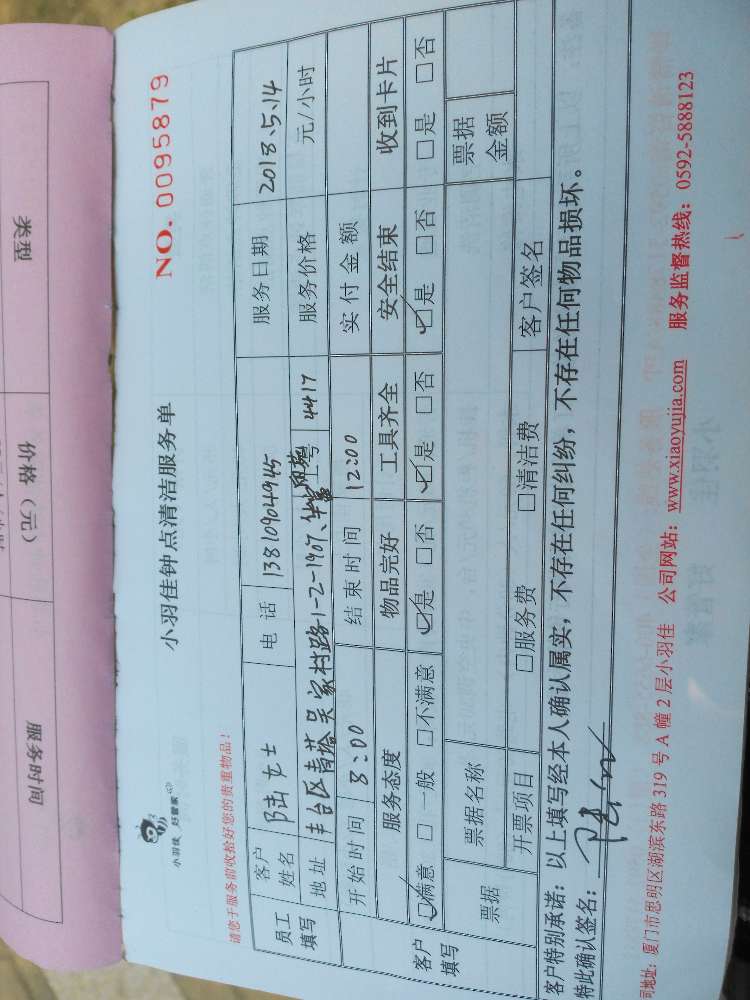 类型
价格（元）
服务时间
小羽佳 好管家
小羽佳钟点清洁服务单
NO. 0095879
请您于服务前收拾好您的贵重物品！
员工填写 客户姓名 陆女士 电话 13810904945 服务日期 2013.5.14
地址 丰台区青塔吴家村路1-2-1907、 工号 4417 服务价格 元/小时
开始时间 8:00 结束时间 12:00 实付金额
客户填写 服务态度 物品完好 工具齐全 安全结束 收到卡片
☑满意 □一般 □不满意 ☑是 □否 ☑是 □否 ☑是 □否 □是 □否
票据 票据名称 票据金额
开票项目 □服务费 □清洁费 客户签名
客户特别承诺：以上填写经本人确认属实，不存在任何纠纷，不存在任何物品损坏。
特此确认签名：
司地址：厦门市思明区湖滨东路 319 号 A 幢 2 层小羽佳 公司网站：www.xiaoyujia.com 服务监督热线：0592-5888123